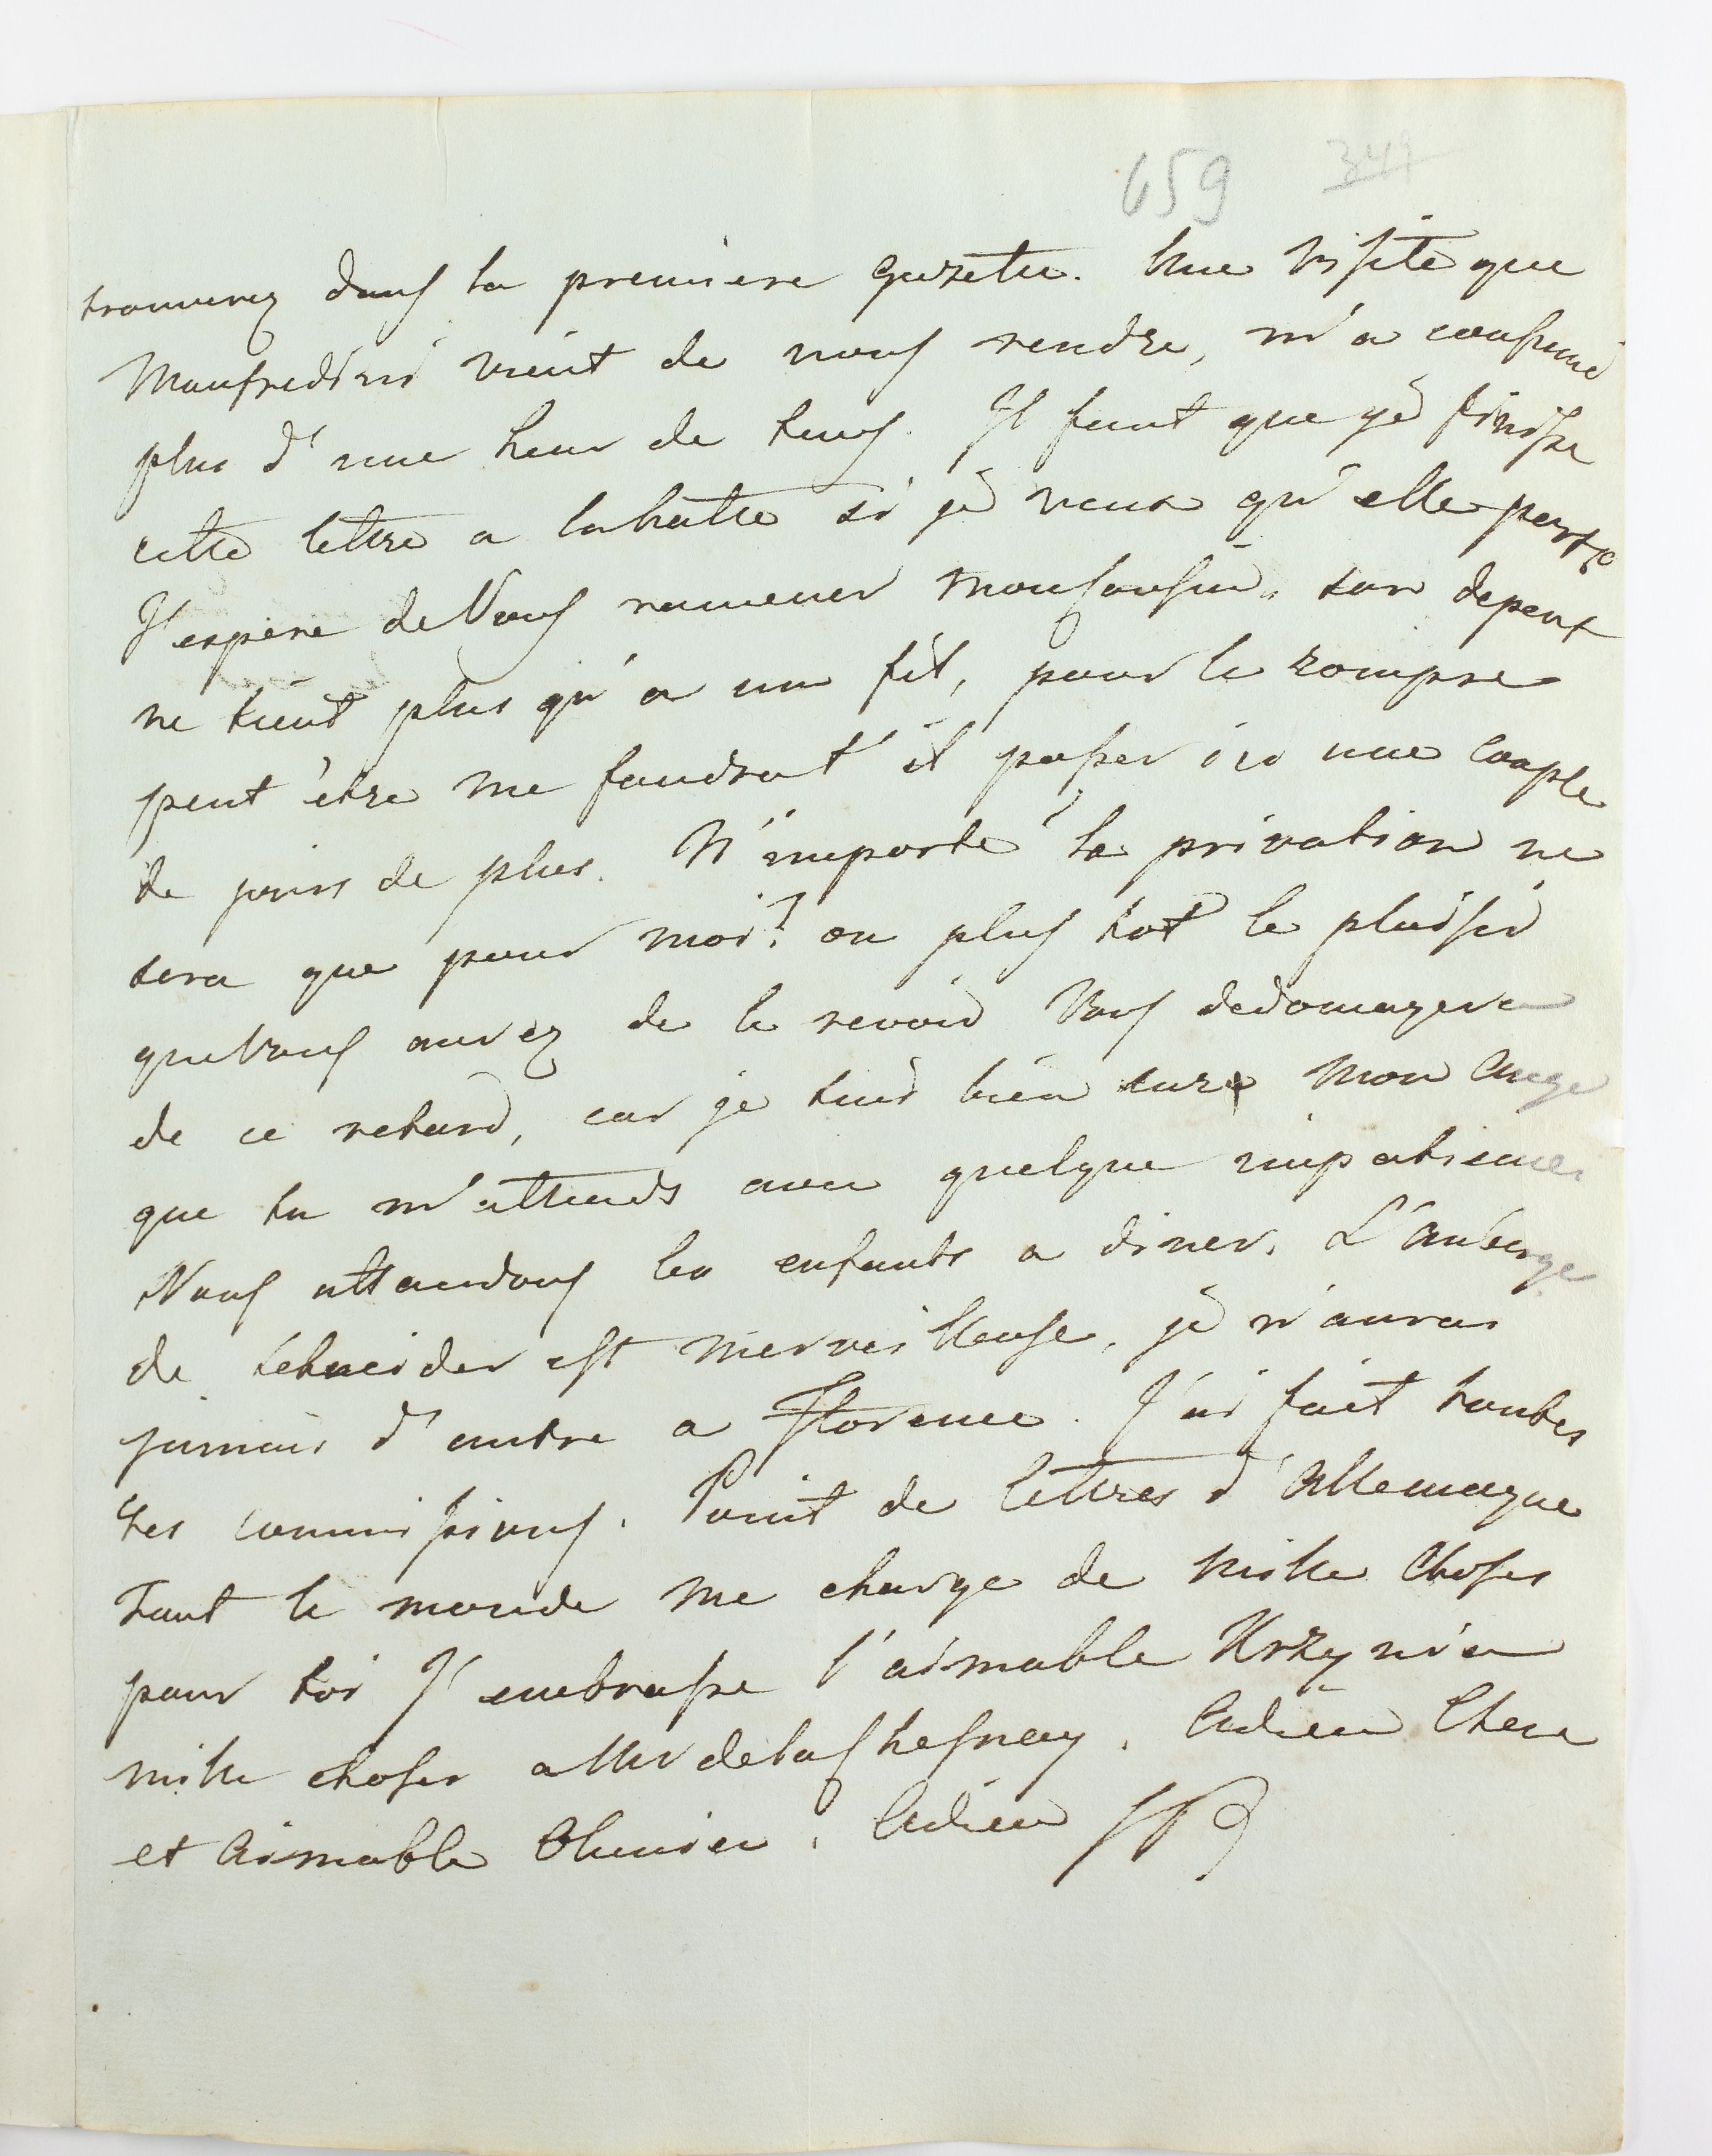 659 347
trouverez dans la premiere Gazette. Une visite que
Manfredini vient de nous rendre, m'a consumé
plus d'une heur de tems. Il faut que je finisse
cette lettre a la hatte si je veux qu'elle parte
J'espère de Vous ramener son depart
ne tient plus qu'a un fil, pour le rompre
peut être me faudrat'il passer ici une couple
de jours de plus. N'importe la privation ne
sera que pour moi? ou plus tot le plaisir
que Vous aurez de le revoir Vous dedomagera
de ce retard, car je suis bien sure Mon Ange
que tu m'attends avec quelque impatience
Nous attendons les enfants a diner. L'auberge
de Schneider est merveilleuse, je n'aurai
jamais d'autre a Florence. J'ai fait toutes
tes commissions. Point de lettres d'Allemagne
Tout le monde me charge de mille choses
pour toi J'embrasse l'aimable
mille choses a Adieu Chere
et aimable Adieu